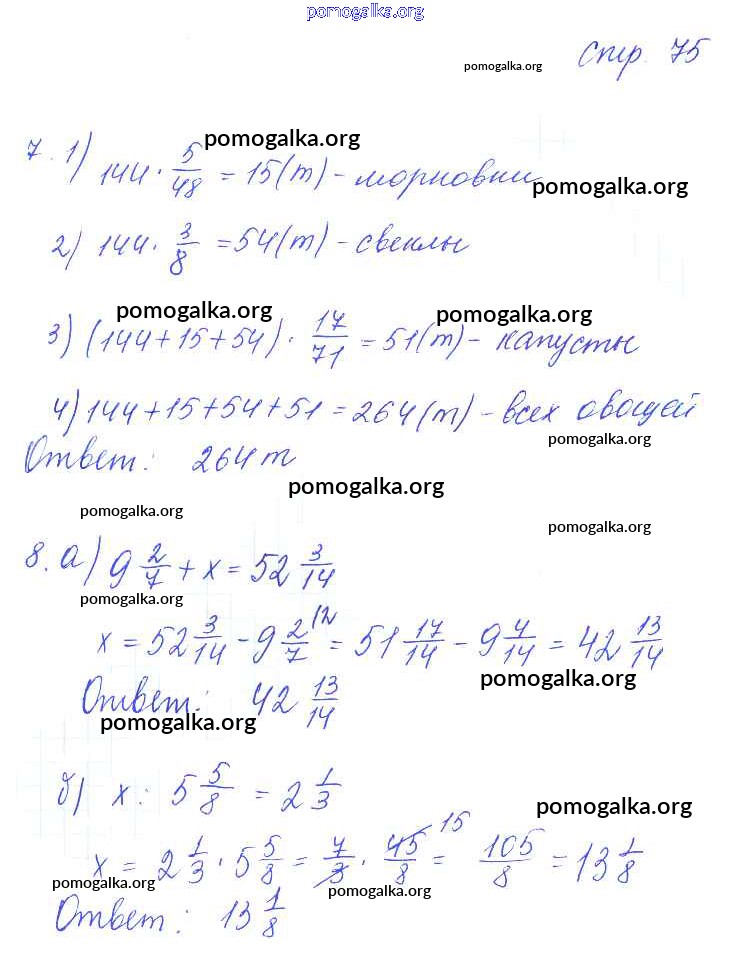 pomogalka.org
pomogalka.org стр. 75
pomogalka.org
7. 1) 144 · 5/48 = 15(т) - морковки pomogalka.org
2) 144 · 3/8 = 54(т) - свеклы
pomogalka.org pomogalka.org
3) (144 + 15 + 54) · 17/71 = 51(т) - капусты
4) 144 + 15 + 54 + 51 = 264(т) - всех овощей
pomogalka.org
Ответ: 264 т
pomogalka.org
pomogalka.org pomogalka.org
8. а) 9 2/7 + x = 52 3/14
pomogalka.org
x = 52 3/14 - 9 2/7 /2 = 51 17/14 - 9 4/14 = 42 13/14
pomogalka.org
Ответ: 42 13/14
pomogalka.org
б) x : 5 5/8 = 2 1/3
pomogalka.org
x = 2 1/3 · 5 5/8 = 7/3 · 45/8 15 = 105/8 = 13 1/8
pomogalka.org pomogalka.org
Ответ: 13 1/8